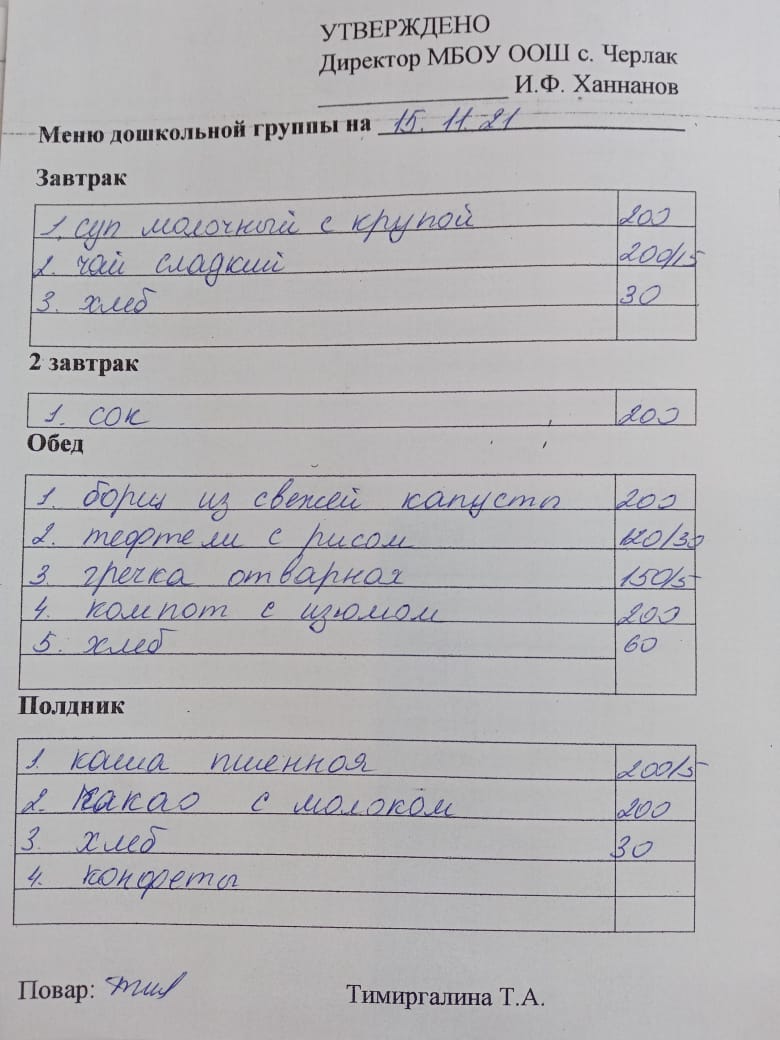 УТВЕРЖДЕНО
Директор МБОУ ООШ с. Черлак
И.Ф. Ханнанов
Меню дошкольной группы на 15. 11. 21
Завтрак
1. суп молочный с крупой 200
2. чай сладкий 200/15
3. хлеб 30
2 завтрак
1. сок 200
Обед
1. борщ из свежей капусты 200
2. тефтели с рисом 120/30
3. гречка отварная 150/5
4. компот с изюмом 200
5. хлеб 60
Полдник
1. каша пшенная 200/5
2. Какао с молоком 200
3. хлеб 30
4. конфеты
Повар: Тимиргалина Т.А.